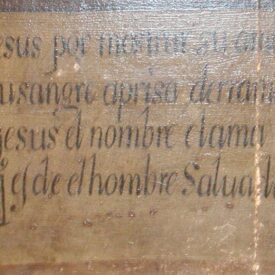 esus por mostrar su am
su sangre aprisa derram
jesus el nombre clama
q es de el hombre Salua d